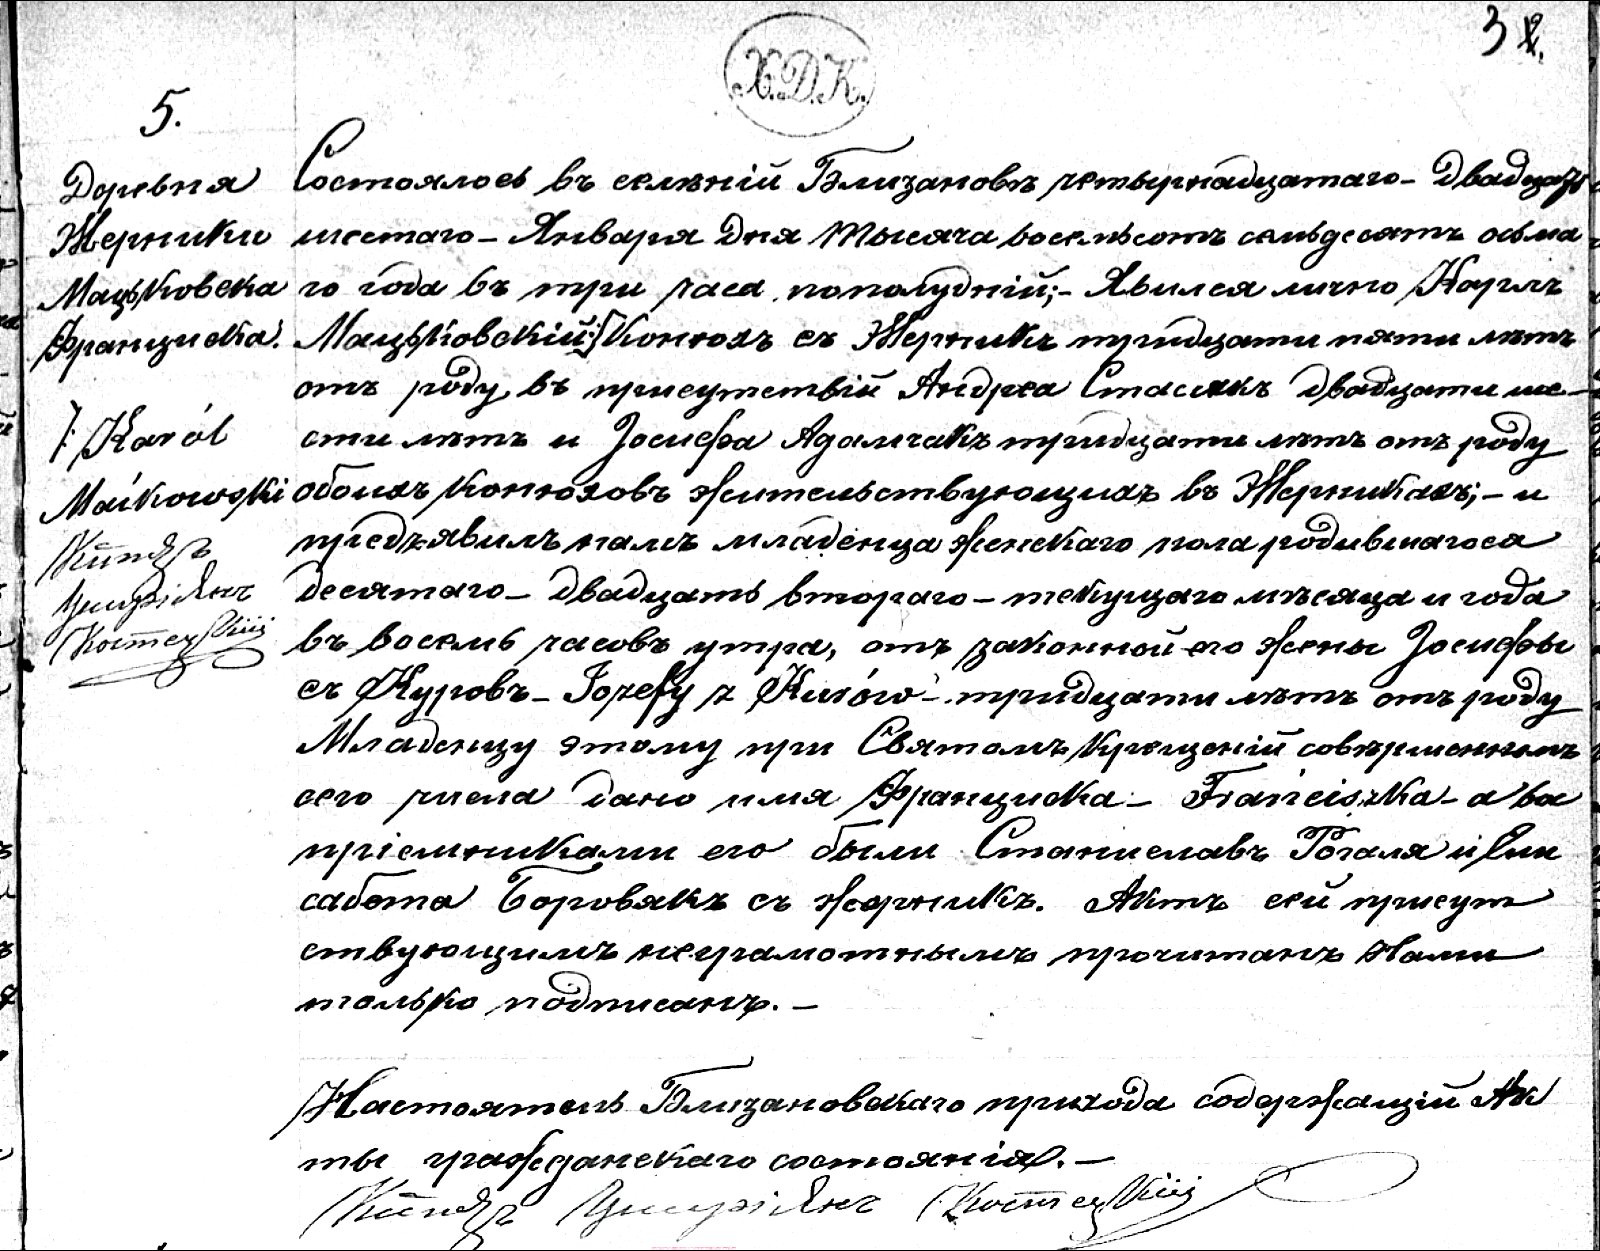 3
Х.Д.К.
5.
Деревня
Жерники
Мацьковска
Франциска.
/: Karól
Maćkowski
Ксендзъ
Костецкій
Состоялось въ селѣній Близановѣ четырнадцатаго – двадцать
шестаго – Января дня тысяча восемьсотъ семьдесятъ осьма
го года въ три часа пополудній; – Явился лично Карлъ
Мацьковскій:/ Конюхъ съ Жерникъ тридцати пяти лѣтъ
отъ роду, въ присутствій Андрея Стасякъ двадцати ше–
сти лѣтъ и Іосифа Адамчакъ тридцати лѣтъ отъ роду
обоихъ конюховъ жительствующихъ въ Жерникахъ; – и
предъявилъ намъ младенца женскаго пола родившагося
десятаго – двадцать втораго – текущаго мѣсяца и года
въ восемь часовъ утра, отъ законной его жены Іосифы
съ Куровъ – Jozefy z Kurów – тридцати лѣтъ отъ роду
Младенцу этому при Святомъ Крещеній совѣршенномъ
сего числа дано имя Франциска – Franciszka – а во
пріемниками его были Станиславъ Рогаля и Ели
сабета Боровякъ съ Жерникъ. Актъ сей присут
ствующимъ неграмотнымъ прочитанъ Нами
только подписанъ. –
Настоятель Близановскаго прихода содержащій Ак
ты гражданскаго состоянія. –
Ксендзъ Костецкій